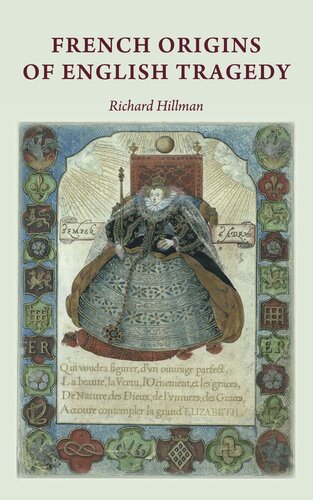 FRENCH ORIGINS
OF ENGLISH TRAGEDY
Richard Hillman
ER
ER
Qui voudra figurer, d'vn ouurage parfect,
La beauté, la Vertu, l'Ornement, et les graces,
De Nature, des Dieux, de l'vniuers, des
Accoure contempler la grand' ELIZABETH.